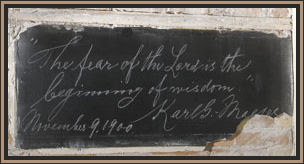 "The fear of the Lord is the
beginning of wisdom."
Karl G. Maeser
November 9, 1900.